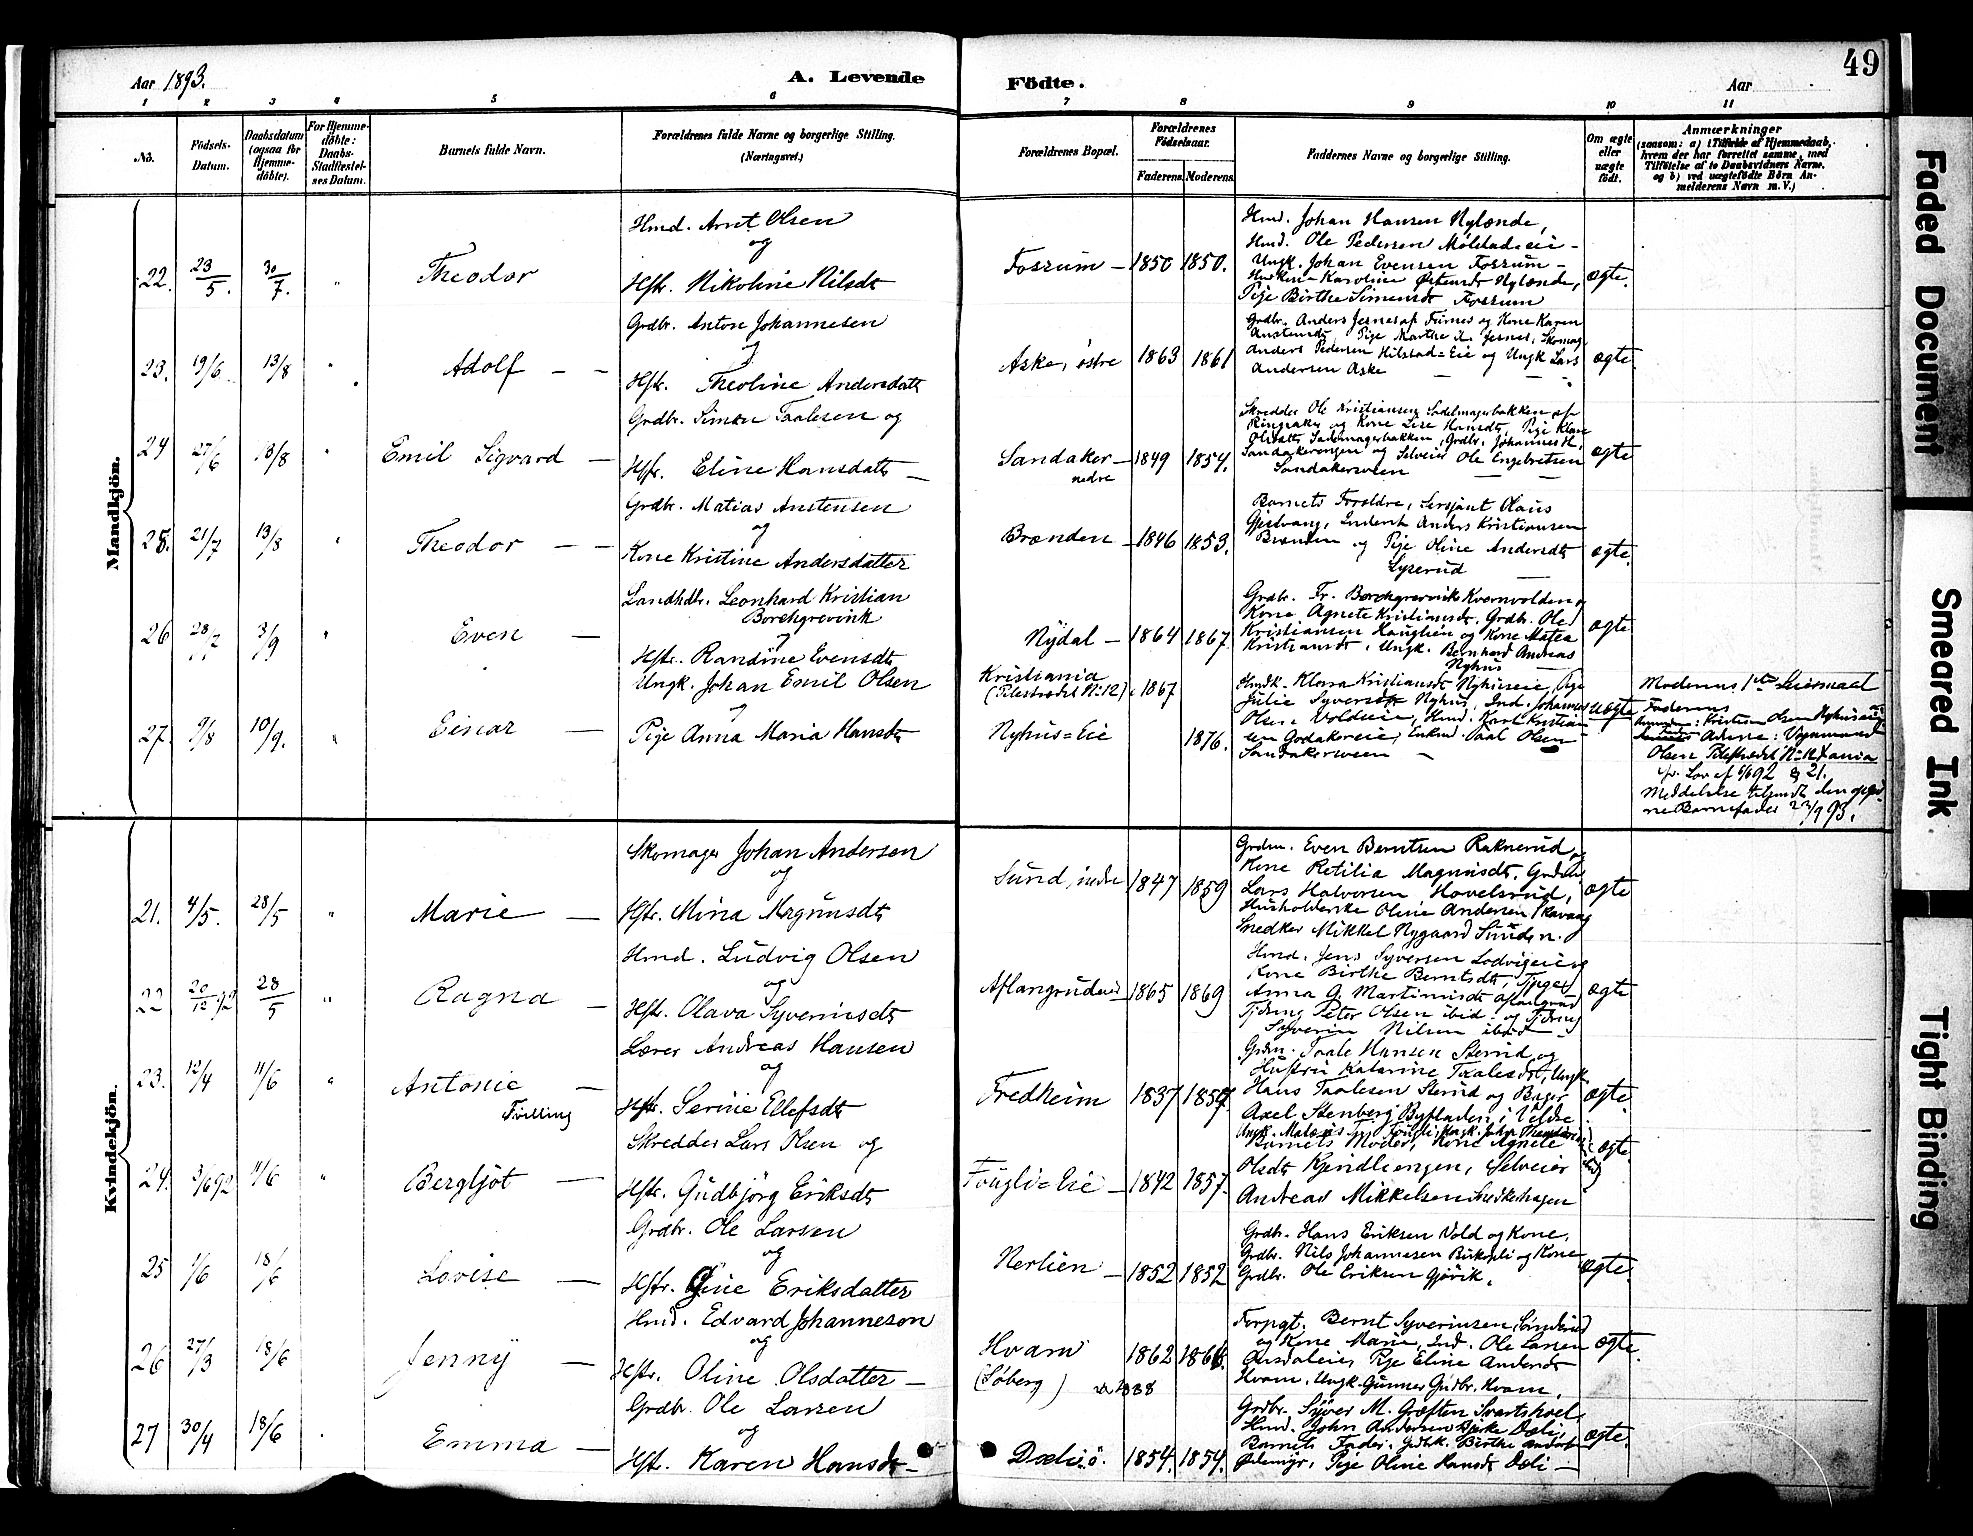 Aar 1893.
A. Levende Födte.
Aar
49
1 2 3 4 5 6 7 8 9 10 11
No.
Födsels-Datum.
Daabsdatum (ogsaa for Hjemmedöbte).
For Hjemmedöbte: Daabs-Stadfæstelses Datum.
Barnets fulde Navn.
Forældrenes fulde Navne og borgerlige Stilling. (Næringsvei.)
Forældrenes Bopæl.
Forældrenes Födselsaar.
Faderens. Moderens.
Faddernes Navne og borgerlige Stilling.
Om ægte eller uægte födt.
Anmærkninger
(saasom: a) i Tilfælde af Hjemmedaab, hvem der har forrettet samme, med Tilföielse af to Daabsvidners Navne, og b) ved uægtefödte Börn Anmelderens Navn m. V.)
Mandkjön.
22. 23/5. 30/7. " Theodor
Hmd. Arnt Olsen
og
Hstr. Nikoline Nilsdt
Fossum – 1850 1850.
Hmd. Johan Hansen Nylænde,
Hmd. Ole Pedersen Mølstadseie –
Ungk. Johan Evensen Fossum –
Karoline Østensdt Nylænde,
Pige Birthe Simensdt Fossum
ægte.
23. 19/6 13/8 " Adolf – –
Grdbr. Anton Johannesen
og
Hstr. Theoline Andersdatt
Aske, østre 1863 1861
Grdbr. Anders Jesnes af Furnes og Kone Karen
Austensdt, Pige Marthe Jesnes, Skomag.
Anders Pedersen Hilstad=Eie og Ungk Lars
Andersen Aske
ægte.
24 27/6 13/8 " Emil Sigvard –
Grdbr. Simen Taalesen og
Hstr. Eline Hansdatt –
Sandaker – nedre 1849 1854.
Skredder Ole Kristiansen Sadelmagerbakken af
Ringsaker og Kone Lise Hansdt, Pige Klare
Olsdatt Sadelmagerbakken, Grdbr. Johannes H.
Sandakerengen og Selveier Ole Engebretsen
Sandakersveen
ægte
25. 21/7 13/8 " Theodor – –
Grdbr. Matias Austensen
og
Kone Kristine Andersdatter
Brænden – 1846 1853.
Barnets Forældre, Sersjant Olaus
Gjestvang, Inderst Anders Kristiansen
Brænden og Pige Oline Andersdt
Lyserud
ægte.
26 28/7 3/9 " Even –
Landhdlr. Leonhard Kristian
Borchgrevink
og
Hstr. Randine Evensdt
Nydal – 1864 1867.
Grdbr. Fr. Borchgrevink Kvernvolden og
Kone Agnete Kristiansdt. Grdbr. Ole
Kristiansen Haughein og Kone Matea
Kristiansdt, Ungk. Bernhard Andreas
Nyhus
ægte.
27. 9/8 10/9. " Einar –
Ungk. Johan Emil Olsen
og
Pige Anna Maria Hansdt
Kristiania
(Pilestrædet No 12) 1867
Nyhus=Eie 1876.
Klara Kristiansdt Nyhuseie, Pige
Julie Syversdt Nyhus, Ind. Johannes
Olsen Voldeie, Hmd. Karl Kristian
sen Godakereie, Enkmd. Paal Olsen
Sandakersveen –
uægte
Moderens 1ste Leiermaal
Faderens
Kristian Olsen Nyhuseie
Olsen Pilestrædet No 12 Xania
Lov af 6/6 92 § 21.
Meddelelse tilsendt den opgiv
ne Barnefader 23/9 93.
Kvindekjön.
21. 4/5. 28/5 " Marie –
Skomager Johan Andersen
og
Hstr. Mina Magnusdt
Sund, indre 1847 1859
Grdm. Even Berntsen Raknerud og
Kone Retilia Magnusdt, Grdbr
Lars Halvorsen Hovelsrud,
Husholderske Oline Andersen Skavang
Snedker Mikkel Nygaard Sunden.
ægte
22 20/12 92 28/5 " Ragna –
Hmd. Ludvig Olsen
og
Hstr. Olava Syverinsdt
Aflangrudeie 1865 1869
Hmd. Jens Syversen Lodvigeie og
Kone Birthe Berntsdt, Tjpige
Anna G. Martinusdt Aflangrud
Tjdreng Peter Olsen ibid. og Tjdreng
Syverin Nilsen ibid –
ægte
23. 12/4 11/6 " Antonie –
Tvilling
Lærer Andreas Hansen
og
Hstr. Serine Ellefsdt
Fredheim 1837 1857.
Grdm. Taale Hansen Sterud og
Hustru Katarine Taalesdt, Ungk.
Hans Taalesen Sterud og Bager
Axel Stenberg Byfladen i Veldre
ægte.
24. 3/6 92 11/6 " Bergljot –
Skredder Lars Olsen og
Hstr. Gudbjörg Eriksdt
Fougli=Eie – 1842 1857.
Barnets Moder, Kone Agnete
Olsdt Kjindliengen, Selveier
Andreas Mikkelsen Snedkerhagen
ægte.
25 1/6 18/6 Lovise –
Grdbr. Ole Larsen
og
Hstr. Gine Eriksdatter
Nerlien – 1852 1852
Grdbr. Hans Eriksen Vold og Kone,
Grdbr. Nils Johannesen Birkeli og Kone
Grdbr. Ole Eriksen Gjövik.
ægte.
26 27/3 18/6 Jenny –
Hmd. Edvard Johanneson
og
Hstr. Oline Olsdatter –
Hvam
(Søberg) 1862
Forpgt. Bernt Syverinsen
og Kone Marie, Ind. Ole Larsen
Pige Eline Andersdt
Hvam, Ungk. Gunner Gudbr. Hvam.
ægte.
27 30/4 18/6 Emma –
Grdbr. Ole Larsen
og
Hst. Karen Hansdt –
Dæli ö. 1854. 1854.
Grdbr. Syver M. Græften Svartshoel
Hmd. John Andersen Bjerke Dæli,
Barnets Fader, Birthe
Pige Oline Hansdt Dæli –
ægte.
Faded Document
Smeared Ink
Tight Binding